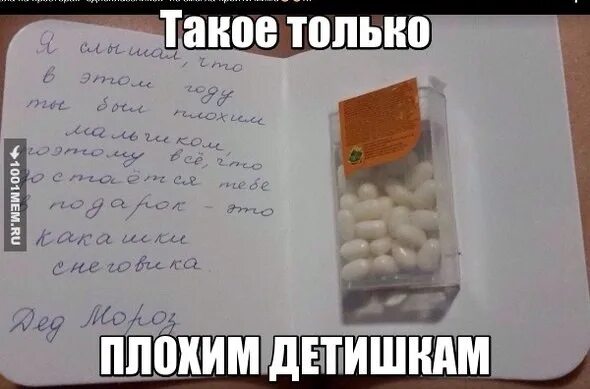 Такое только
Я слышал, что
в этом году
ты был плохим
мальчиком,
поэтому всё, что
достаётся тебе
в подарок - это
какашки
снеговика
Дед Мороз
ПЛОХИМ ДЕТИШКАМ
1001MEM.RU